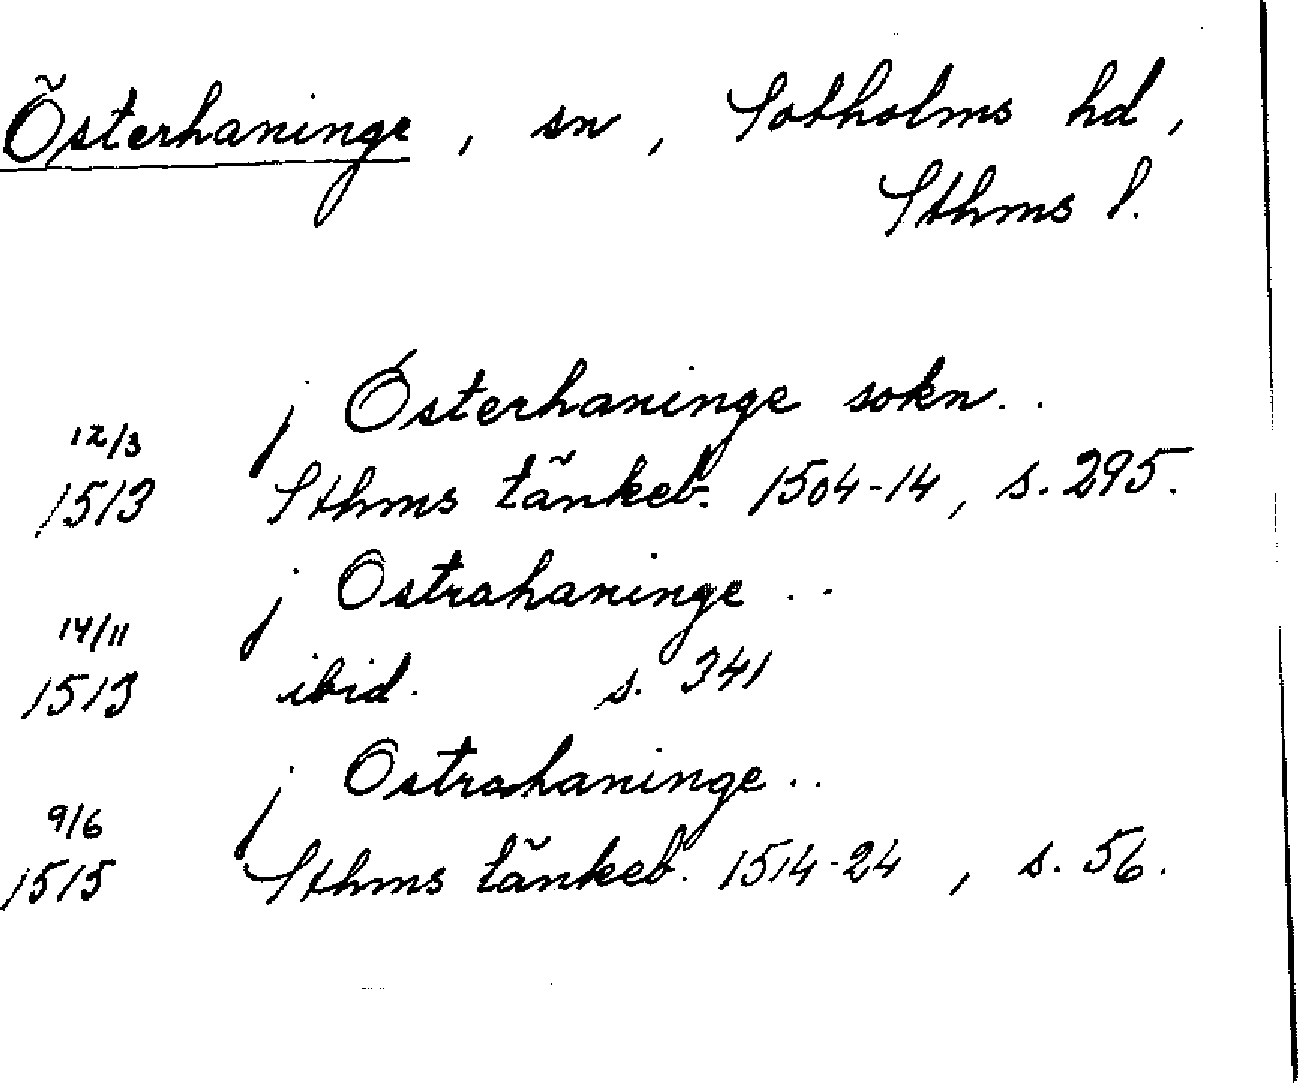 Österhaninge, sn, Sotholms hd,
Sthms l.
j Österhaninge sokn..
12/3
1513 Sthms tänkeb. 1504-14, s. 295.
j Ostrahaninge..
14/11
1513 ibid. s. 341
j Ostrahaninge..
9/6
1515 Sthms tänkeb. 1514-24, s. 56.